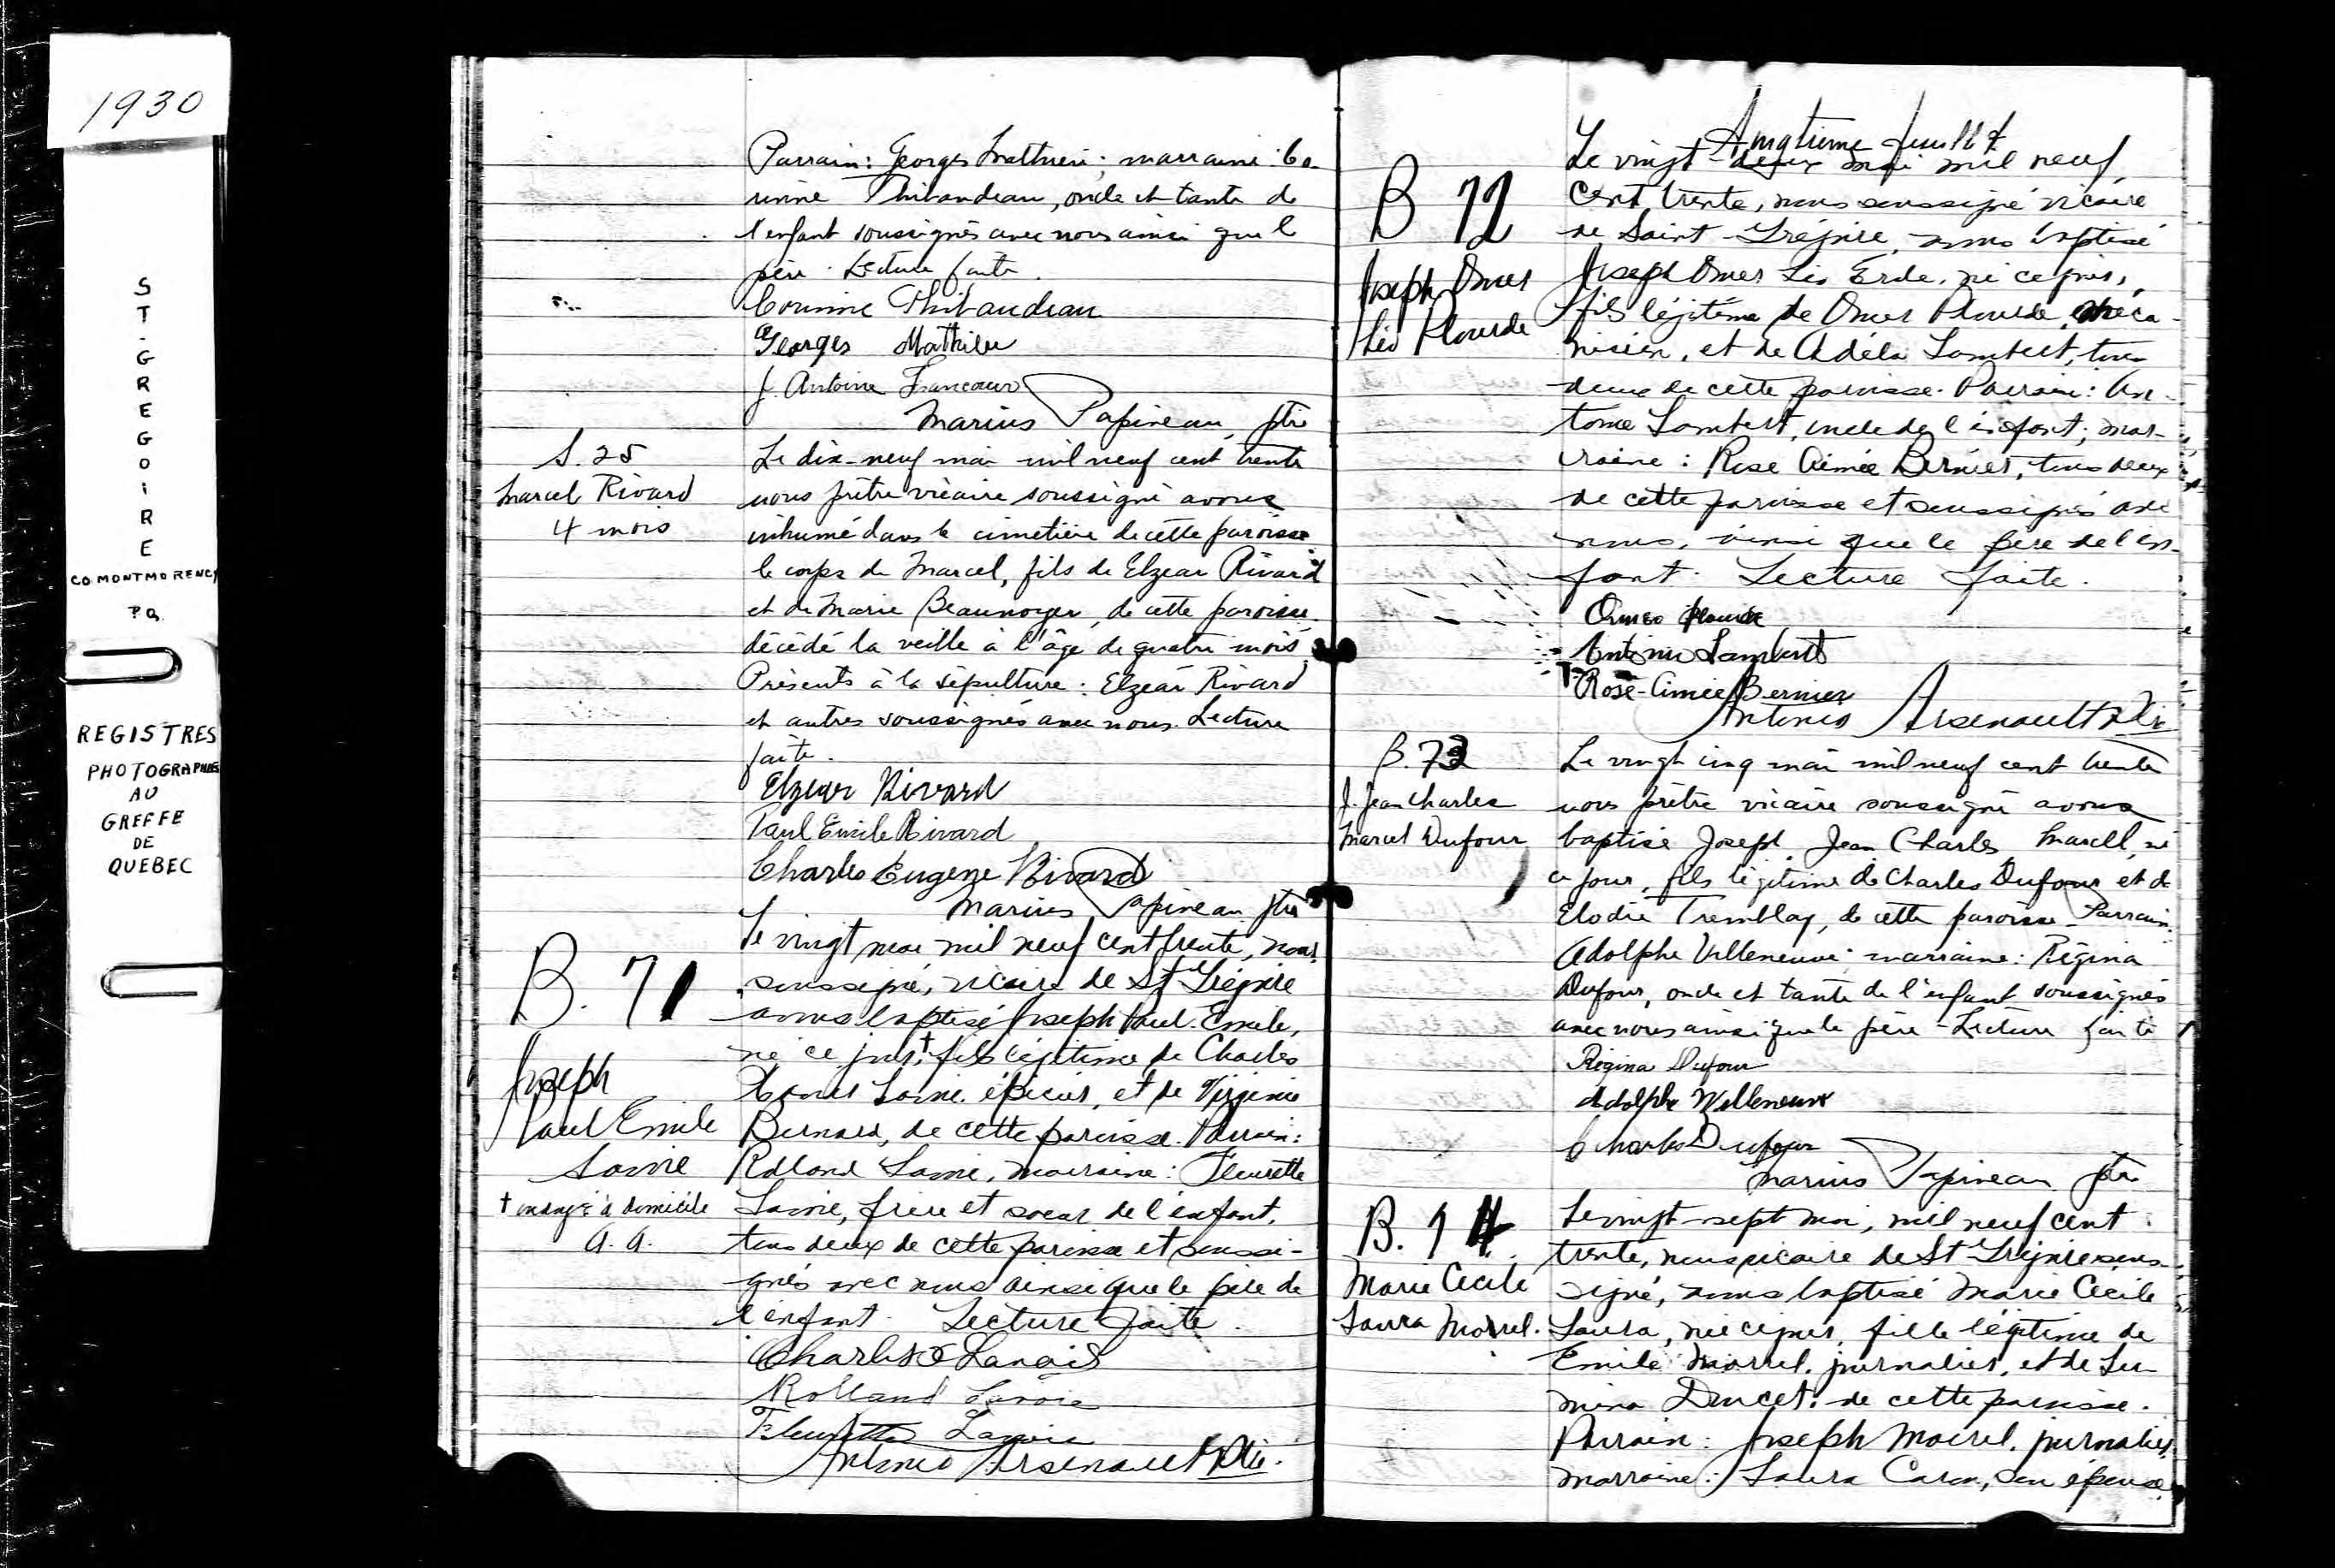 1930
ST. GREGOIRE
CO. MONTMORENCY
P.Q.
REGISTRES
PHOTOGRAPHIÉS
AU
GREFFE
DE
QUEBEC
Parrain: Georges Mathieu; marraine: Co-
rinne Thibaudeau, oncle et tante de
l'enfant soussignés avec nous ainsi que le
père. Lecture faite.
Corinne Thibaudeau
Georges Mathieu
J. Antoine Francoeur
Marius Papineau, ptre
S. 25
Marcel Rivard
4 mois
Le dix-neuf mai mil neuf cent trente
nous prêtre vicaire soussigné avons
inhumé dans le cimetière de cette paroisse
le corps de Marcel, fils de Elzear Rivard
et de Marie Beaunoyer, de cette paroisse
décédé la veille à l'âge de quatre mois
Présents à la sépulture: Elzéar Rivard
et autres soussignés avec nous. Lecture
faite.
Elzear Rivard
Paul Emile Rivard
Charles Eugene Rivard
Marius Papineau ptre
B. 71
Joseph
Paul Emile
Lavoie
† ondoyé à domicile
A. A.
Le vingt mai mil neuf cent trente, nous
soussigné, vicaire de St Grégoire
avons baptisé Joseph Paul-Emile,
né ce jour,† fils légitime de Charles
Lavoie, épicier, et de Virginie
Bernard, de cette paroisse. Parrain:
Rolland Lavoie, marraine: Fleurette
Lavoie, frère et soeur de l'enfant,
tous deux de cette paroisse et soussi-
gnés avec nous ainsi que le père de
l'enfant. Lecture faite.
Charles Lavoie
Rolland Lavoie
Fleurette Lavoie
Antonio Arsenault Ptre.
feuillet
B 72
Joseph Omer
Léo Plourde
Le vingt-deux mai mil neuf
cent trente, nous soussigné vicaire
de Saint-Grégoire, avons baptisé
Joseph Omer Léo, né ce jour,
fils légitime de Omer Plourde, méca-
nicien, et de Adéla Lambert, tous
deux de cette paroisse. Parrain: An-
tonio Lambert, oncle de l'enfant; mar-
raine: Rose Aimée Bernier, tous deux
de cette paroisse et soussignés avec
nous, ainsi que le père de l'en-
fant. Lecture faite.
Omer Plourde
Antonio Lambert
Rose-Aimée Bernier
Antonio Arsenault Ptre
B. 73
J. Jean Charles
Marcel Dufour
Le vingt cinq mai mil neuf cent trente
nous prêtre vicaire soussigné avons
baptisé Joseph Jean Charles Marcell, né
ce jour, fils légitime de Charles Dufour et de
Elodie Tremblay, de cette paroisse. Parrain:
Adolphe Villeneuve; marraine: Régina
Dufour, oncle et tante de l'enfant soussignés
avec nous ainsi que le père - Lecture faite
Régina Dufour
Adolphe Villeneuve
Charles Dufour
Marius Papineau ptre
B. 74
Marie Cecile
Laura Morel.
Le vingt-sept mai, mil neuf cent
trente, nous vicaire de St Grégoire sous-
signé, avons baptisé Marie Cécile
Laura, née ce jour, fille légitime de
Emile Morel, journalier, et de Lu-
mina Doucet, de cette paroisse.
Parrain: Joseph Morel, journalier,
marraine: Laura Caron, son épouse,